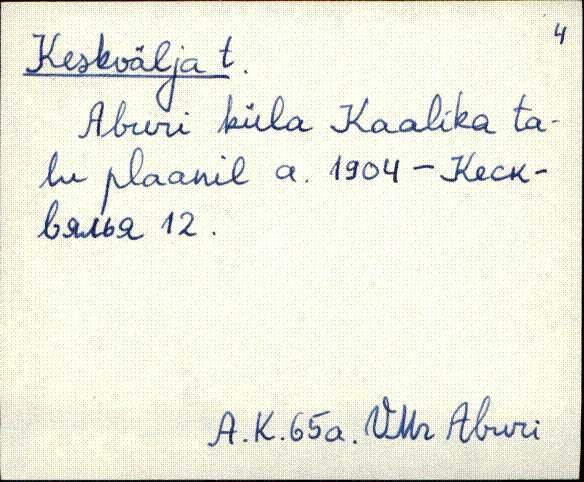 4
Keskvälja t.
Aburi küla Kaalika ta-
lu plaanil a. 1904 – Кеск-
вялья 12.
A.K.65a. VMr Aburi